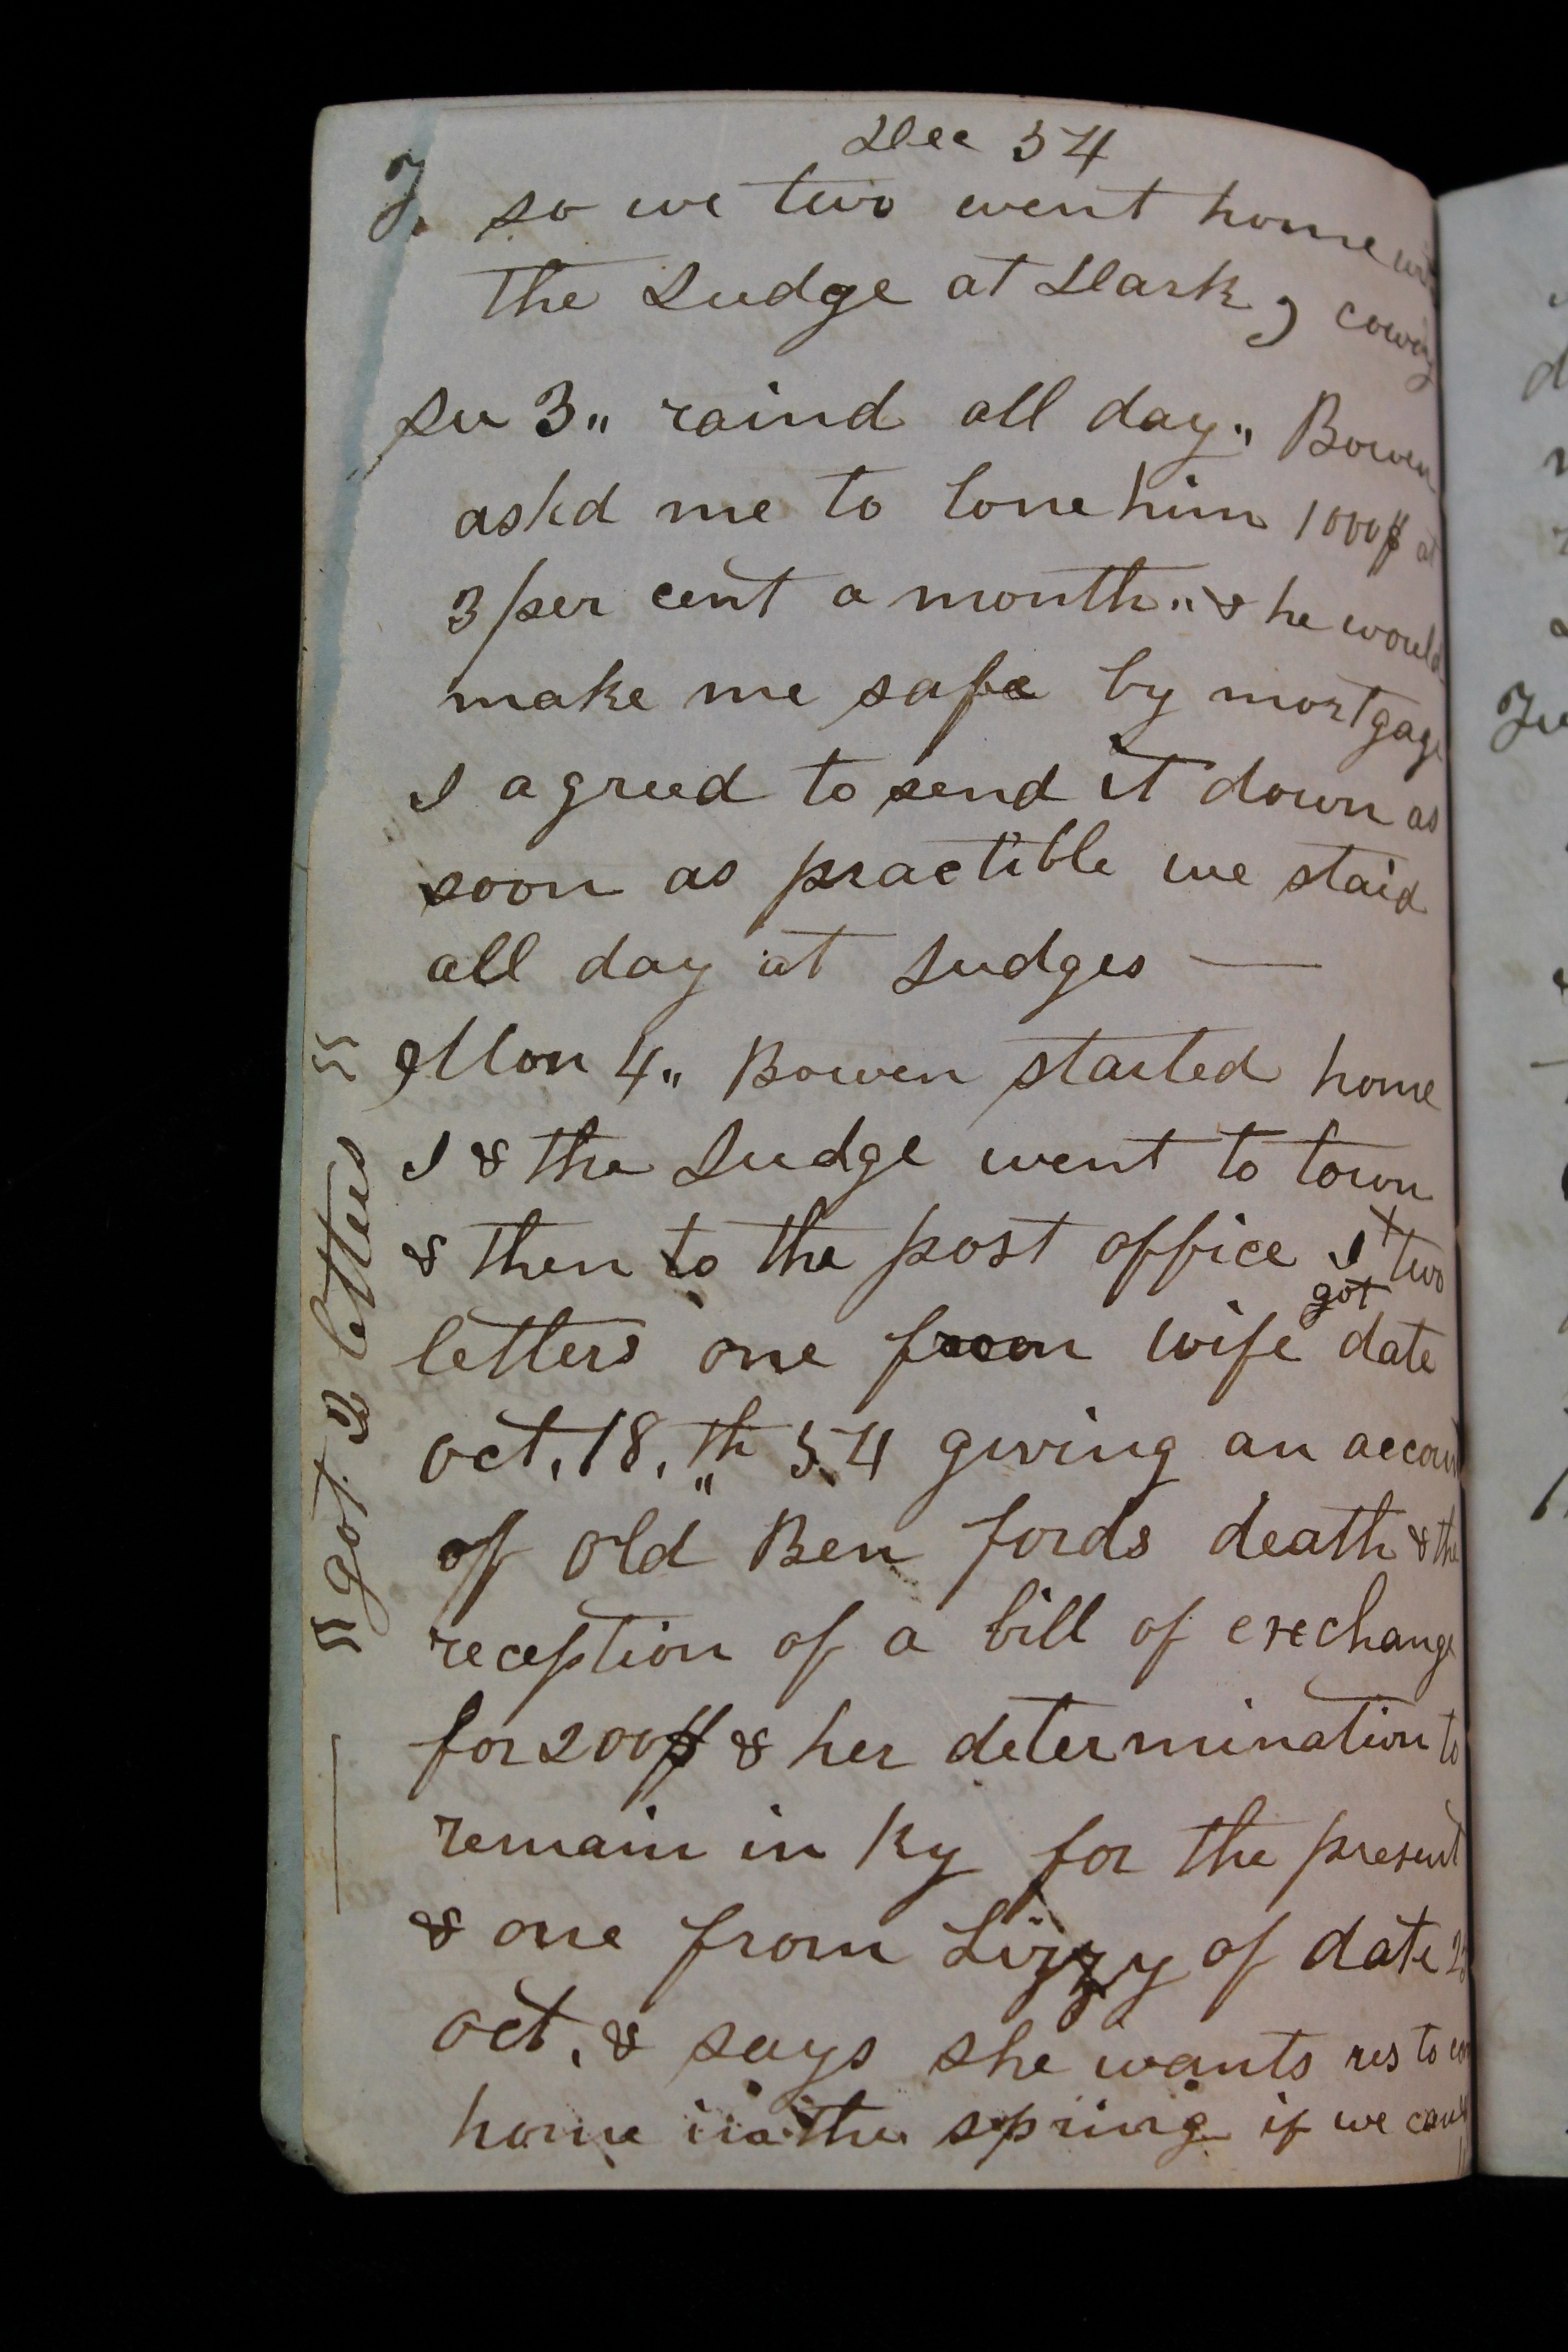 Dec 54
7. so we two went home
the Judge at Dark,
Su 3„ raind all day„ Bowen
askd me to lone him 1000$ at
3/per cent a month„ & he would
make me safe by mortgage
I agreed to send it down as
soon as practible we staid
all day at Judges —
Mon 4„ Bowen started home
I & the Judge went to town
& then to the post office I + two
got
letters one from wife date
oct. 18.th 54 giving an account
of old Ben fords death & the
reception of a bill of exechange
for 200$ & her determination to
remain in Ky for the present
& one from Lizzy of date
oct. & says she wants us to
home in the spring if we can
"got 2 letters"